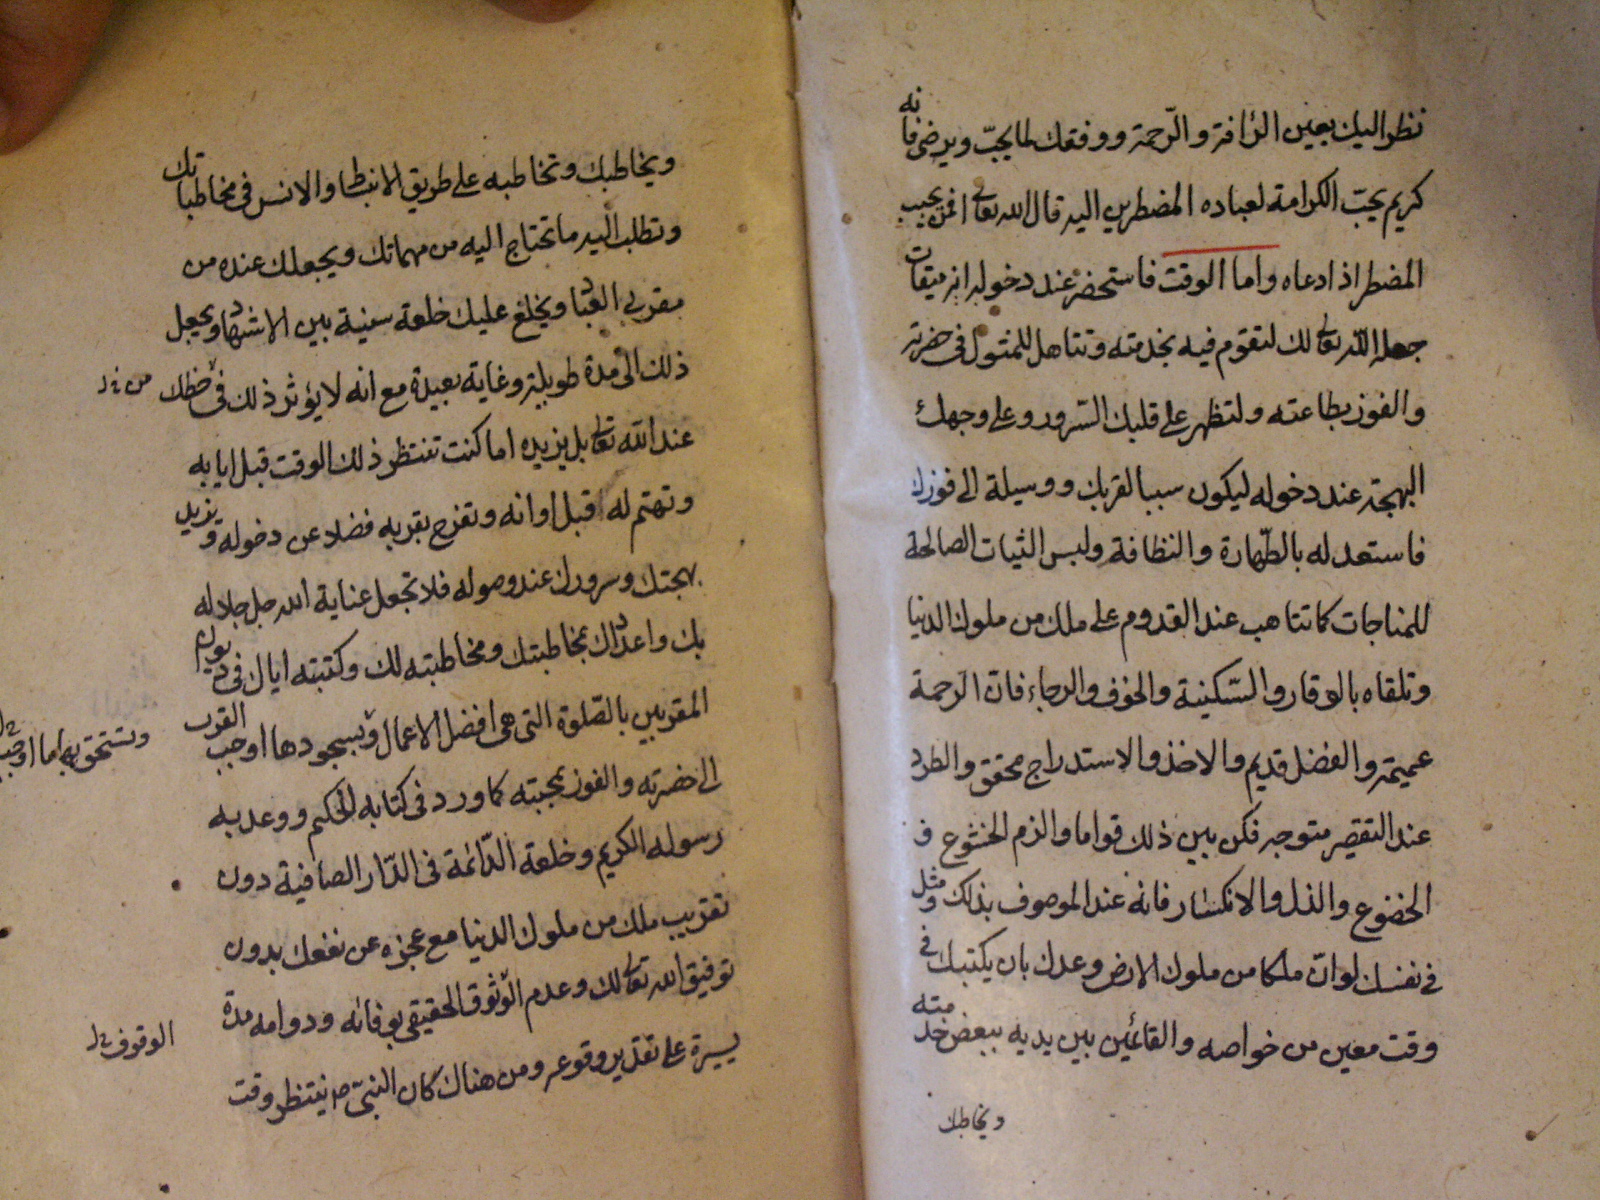 نظر اليك بعين الرأفة والرّحمة ووفقك لما يحبّ ويرضى فانه
كريم يحبّ الكرامة لعباده المضطرين اليه قال الله تعالى افمن يجيب
المضطر اذا دعاه واما الوقت فاستحضر عند دخوله انه ميقات
جعله الله تعالى لك لتقوم فيه بخدمته وتتاهل للمثول فى حضرته
والفوز بطاعته ولتظهر على قلبك السّرور وعلى وجهك
البهجة عند دخوله ليكون سببا لقربك ووسيلة الى فوزك
فاستعد له بالطّهارة والنظافة ولبس الثياب الصالحة
للمناجات كما تتاهب عند القدوم على ملك من ملوك الدنيا
وتلقاه بالوقار والسّكينة والخوف والرجاء فان الرحمة
عميمة والفضل قديم والاخذ والاستدراج محقق والطرد
عند التقصير متوجه فكن بين ذلك قواما والزم الخشوع و
الخضوع والذل والانكسار فانه عند الموصوف بذلك ومثل
فى نفسك لو ان ملكا من ملوك الارض وعدك بان يكتبك فى
وقت معين من خواصه والقائمين بين يديه ببعض خدمته
ويخاطبك
ويخاطبك وتخاطبه على طريق الانبساط والانس فى مخاطباتك
وتطلب اليه ما تحتاج اليه من مهماتك ويجعلك عنده من
مقربى العباد ويخلع عليك خلعة سنية بين الاشهاد ويجعل
ذلك الى مدة طويلة وغاية بعيدة مع انه لا يؤثر ذلك فى حظك
من
عند الله تعالى بل يزيده اما كنت تنتظر ذلك الوقت قبل ايابه
وتهتم له قبل اوانه وتفرح بقربه فضلا عن دخوله ويزيد
بهجتك وسرورك عند وصوله فلا تجعل عناية الله جل جلاله
بك واعدادك بمخاطبتك ومخاطبته لك وكتبته اياك فى ديوان
المقربين بالصّلوة التى هى افضل الاعمال وبسجودها اوجب القرب
وتستحق به اما
الى حضرته والفوز بمحبته كما ورد فى كتابه الحكيم ووعد به
رسوله الكريم وخلعة الدّائمة فى الدّار الصافية دون
تقريب ملك من ملوك الدنيا مع عجزه عن نفعك بدون
توفيق الله تعالى لك وعدم الوثوق الحقيقى بوفائه ودوامه مدة
الوقوف
يسيرة على تقدير وقوعه ومن هناك كان النبىّ ص ينتظر وقت